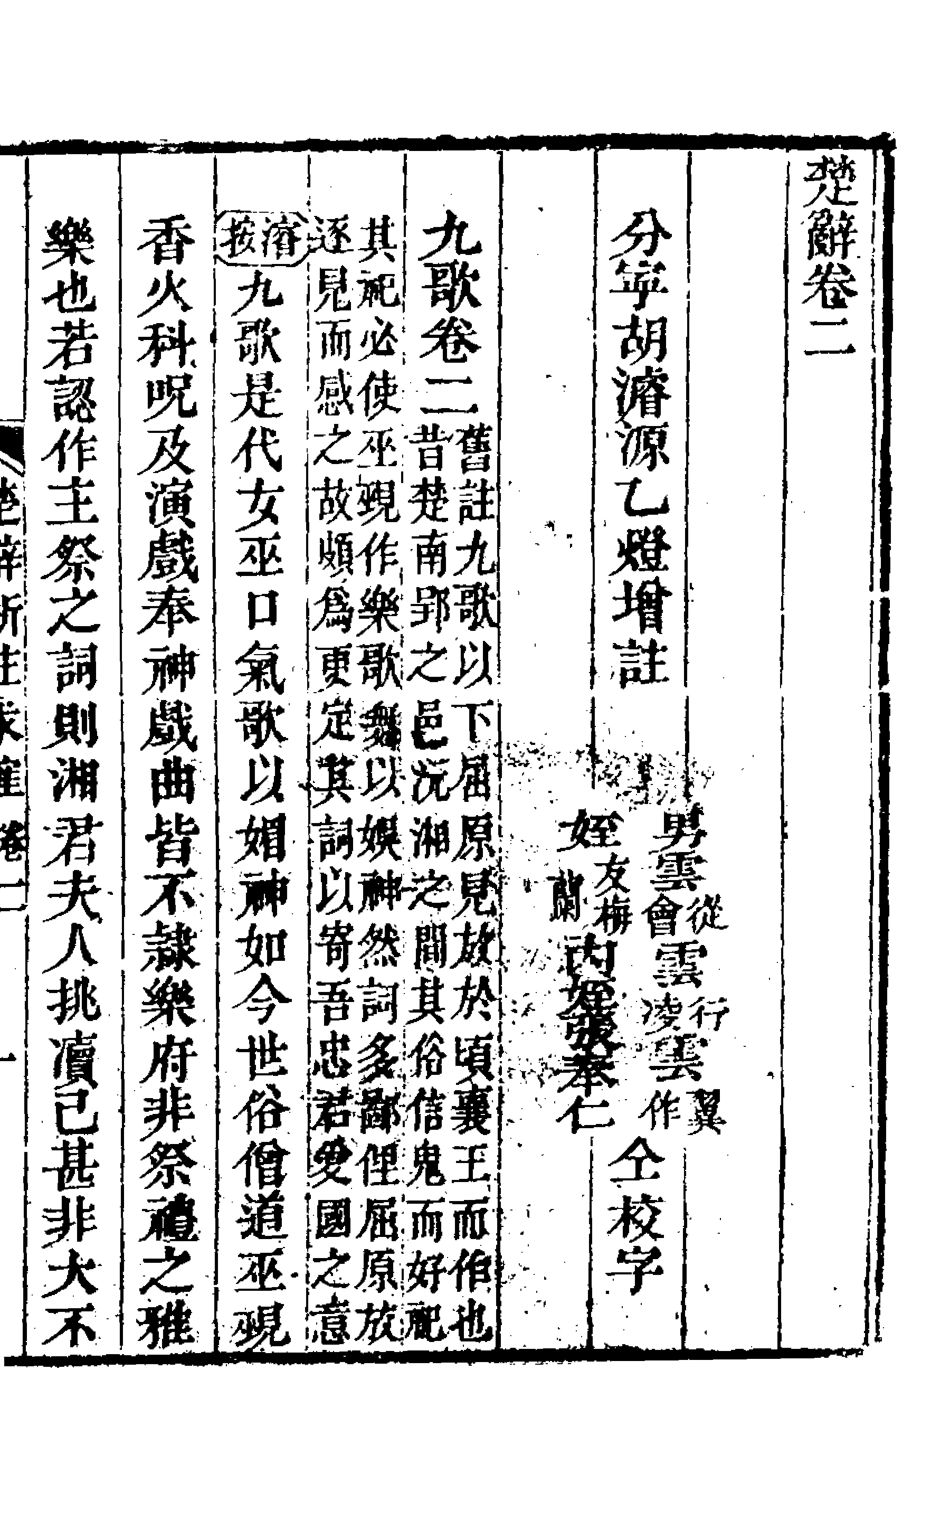 楚辭卷二
分寧胡濬源乙燈增註
男雲會從雲凌行雲作翼
姪友梅蘭
奉仁
仝校字
九歌卷二
舊註九歌以下屈原見放於頃襄王而作也
昔楚南郢之邑沅湘之間其俗信鬼而好祀
其祀必使巫覡作樂歌舞以娛神然詞多鄙俚屈原放
逐見而感之故頗為更定其詞以寄吾忠君愛國之意
濬按九歌是代女巫口氣歌以媚神如今世俗僧道巫覡
香火科呪及演戲奉神戲曲皆不隸樂府非祭禮之雅
樂也若認作主祭之詞則湘君夫人挑瀆已甚非大不
楚辭新註求確 卷二 一